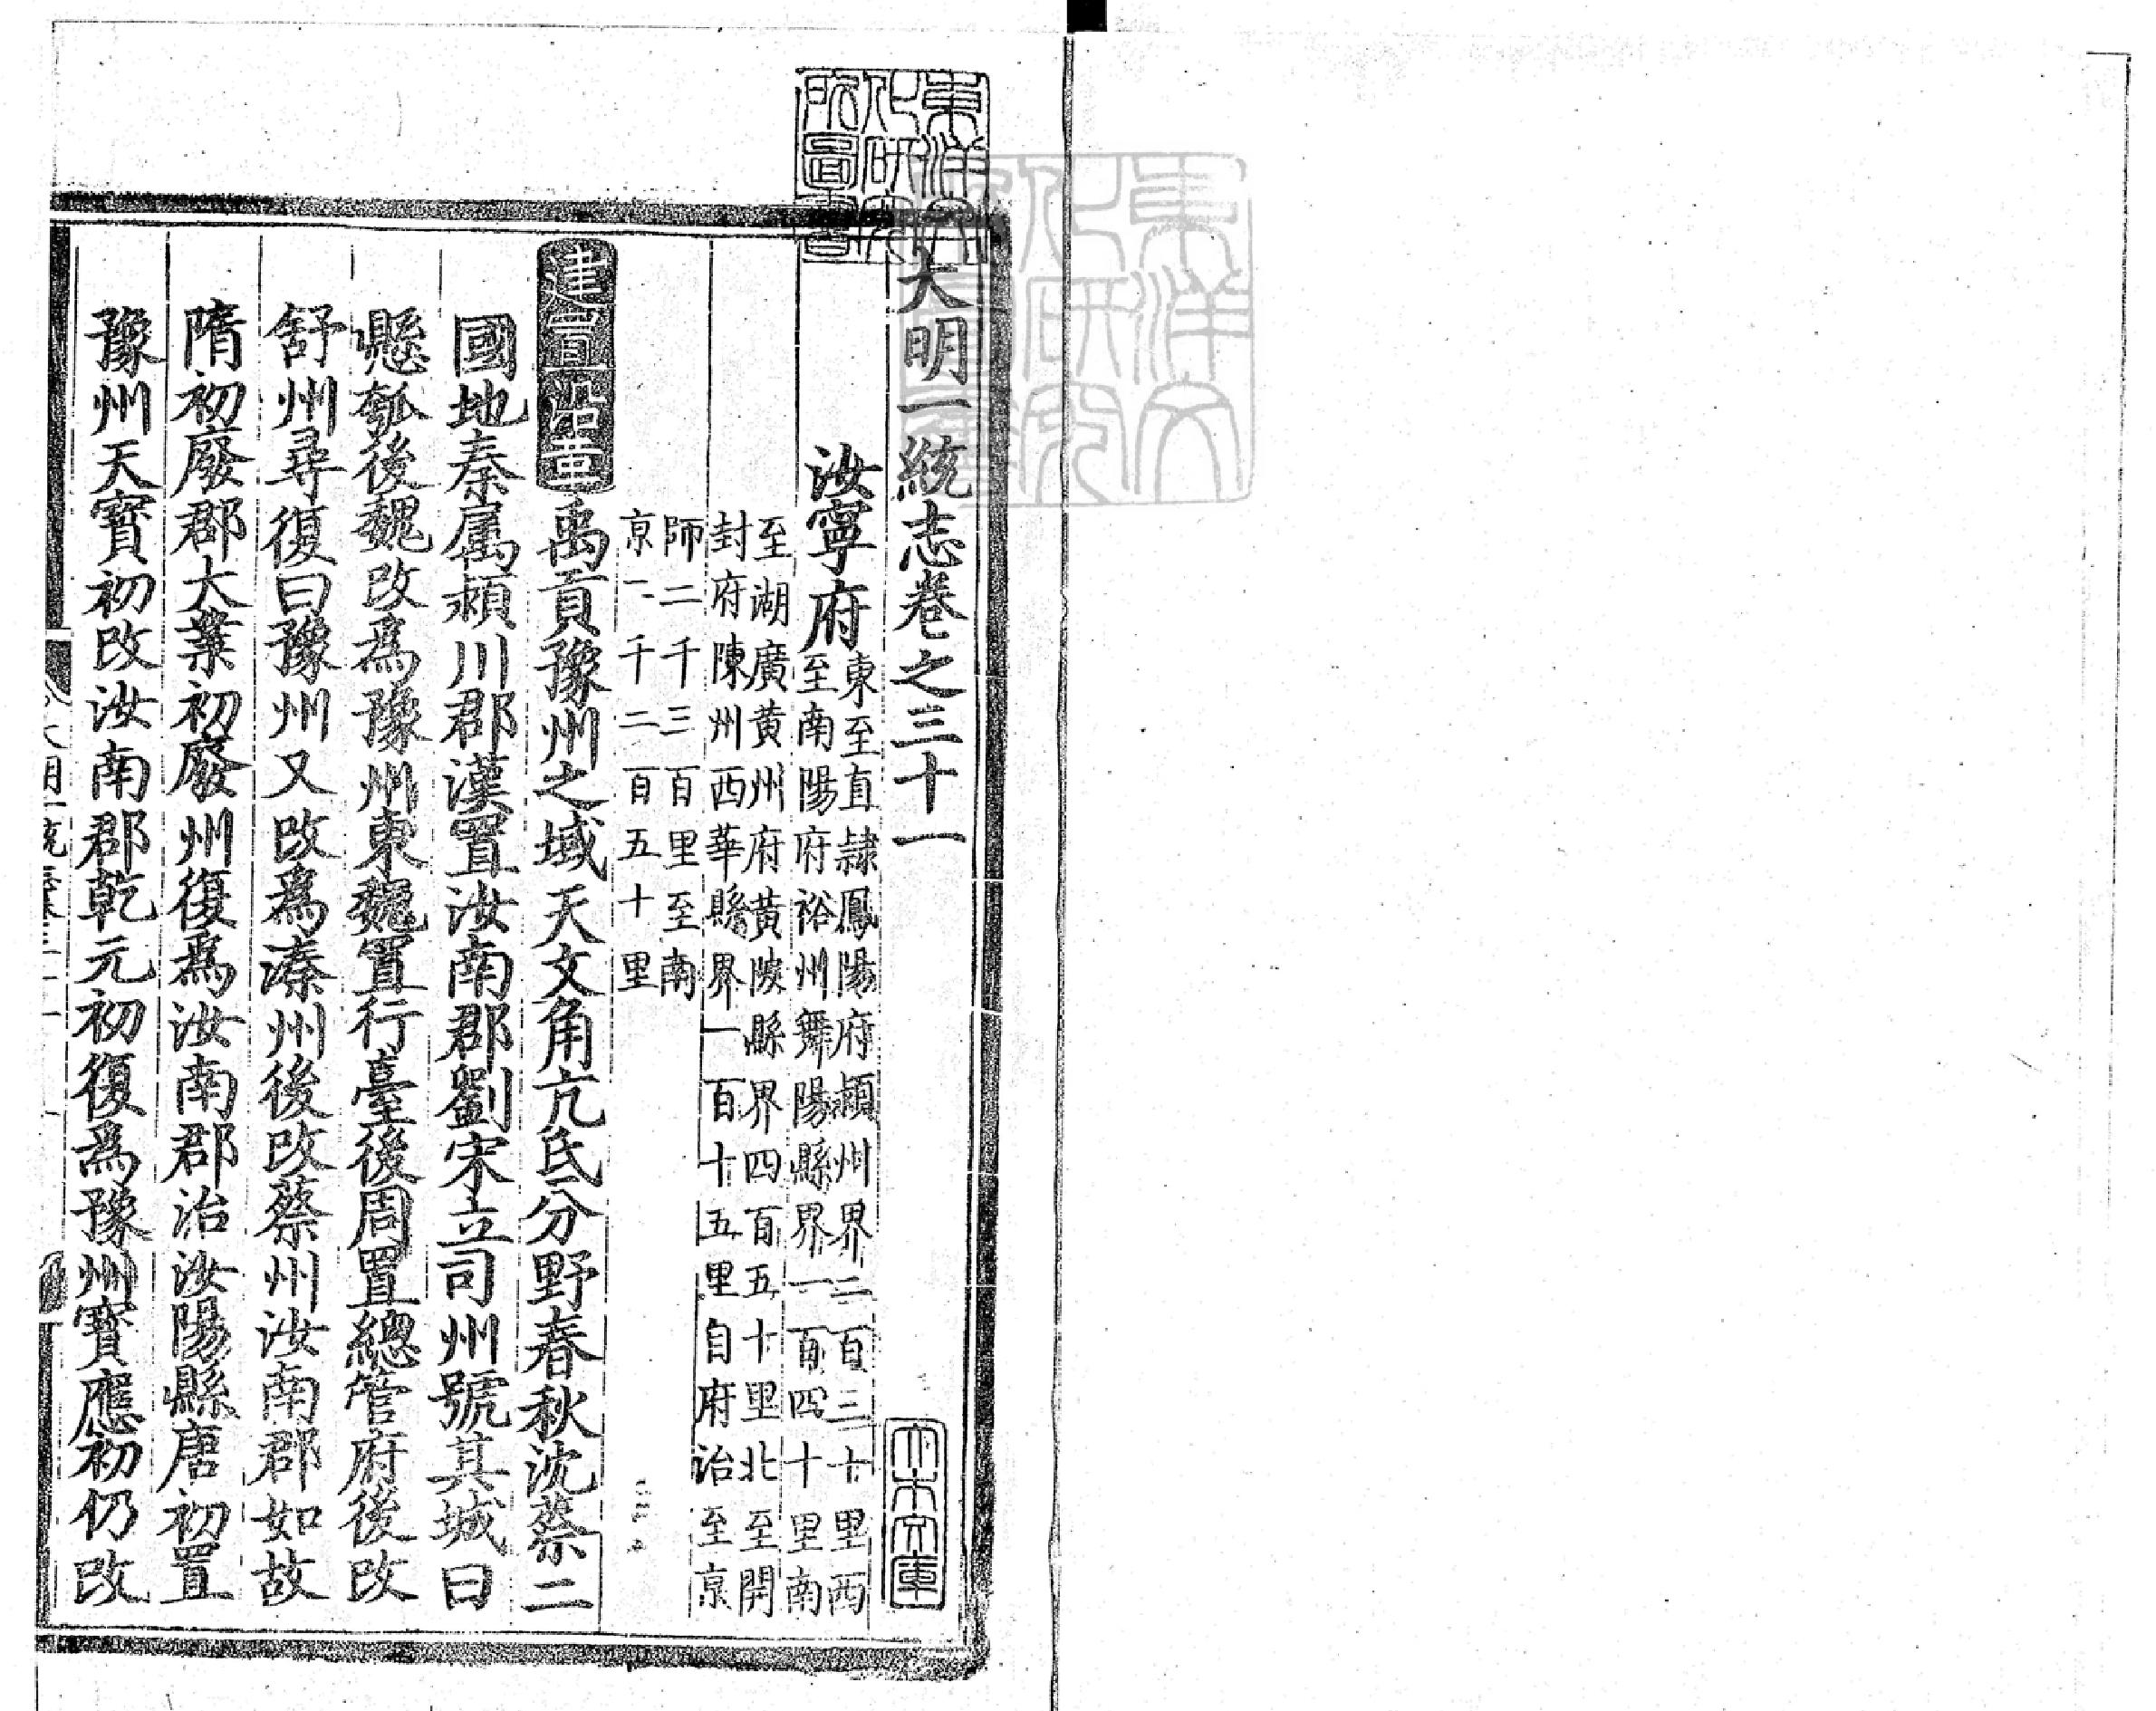 大明一統志卷之三十一
汝寧府
東至直隷鳳陽府潁州界二百三十里西
至南陽府裕州舞陽縣界一百四十里南
至湖廣黄州府黄陂縣界四百五十里北至開
封府陳州西華縣界一百十五里自府治至亰
師二千三百里至南
亰一千二百五十里
建置沿革禹貢豫州之域天文角亢氐分野春秋沈蔡二
國地秦属潁川郡漢置汝南郡劉宋立司州號其城曰
懸瓠後魏改為豫州東魏置行臺後周置總管府後改
舒州尋復曰豫州又改爲溱州後改蔡州汝南郡如故
隋初廢郡大業初廢州復爲汝南郡治汝陽縣唐初置
豫州天寳初改汝南郡乾元初復爲豫州寳應初仍改
東洋文
化研究
所圖書
大木文庫